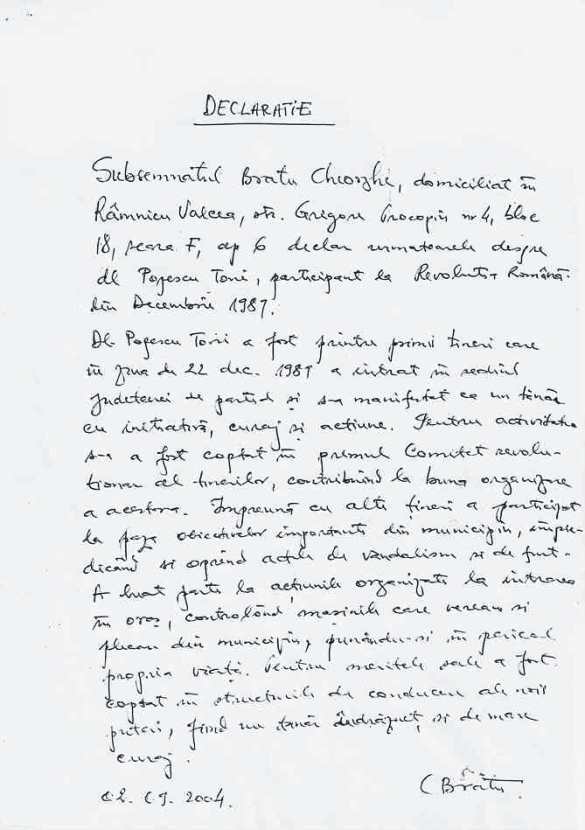 DECLARATIE
Subsemnatul Bratu Gheorghe, domiciliat în
Râmnicu Valcea, str. Grigore Procopiu nr 4, bloc
18, scara F, ap 6 declar urmatoarele despre
dl Popescu Toni, participant la Revolutia Română
din Decembrie 1989.
Dl Popescu Toni a fost printre primii tineri care
în ziua de 22 dec. 1989 a intrat în sediul
Judetenei de partid și s-a manifestat ca un tânăr
cu initiativă, curaj și actiune. Pentru activitatea
s-a a fost coptat în primul Comitet revolu-
tionar al tinerilor, contribuind la buna organizare
a acestora. Împreună cu alti tineri a participat
la paza obiectivelor importante din municipiu, împie-
dicând si oprind actele de vandalism si de furt.
A luat parte la acțiunile organizate la intrarea
în oraș, controlând masinile care veneau si
plecau din municipiu, punându-si în pericol
propria viată. Pentru meritele sale a fost
coptat în structurile de conducere ale noii
puteri, fiind un tânăr îndrăzneț si de mare
curaj.
02.09.2004. GBratu